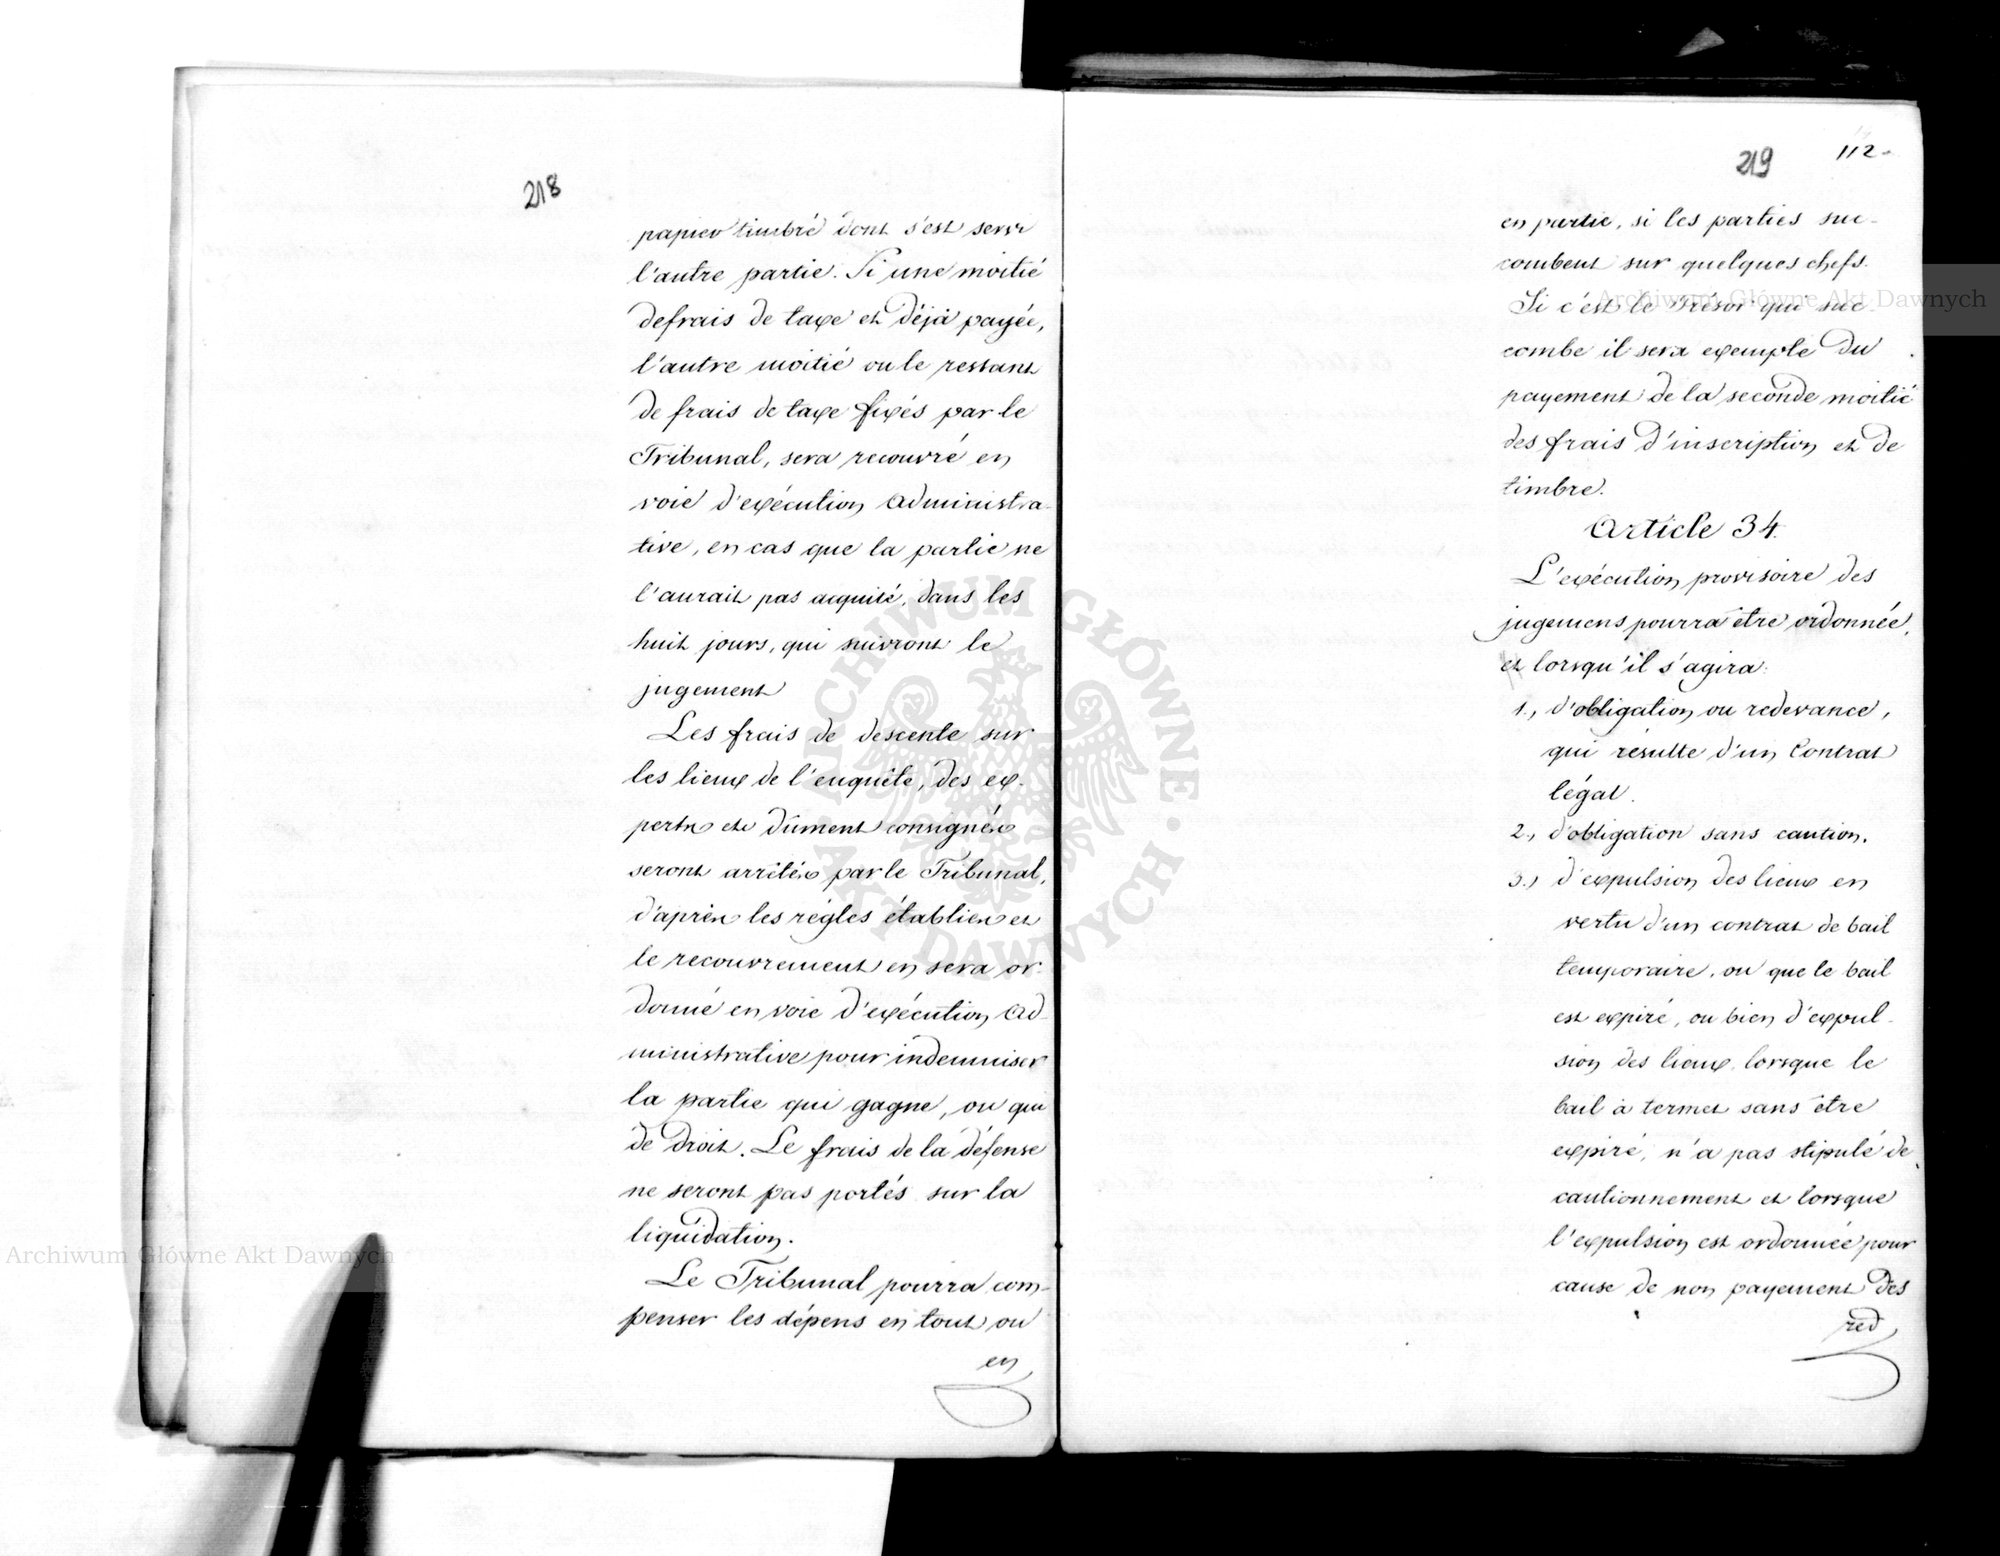 218
papier timbré dont s'est servi
l'autre partie. Si une moitié
defrais de taxe et déjà payée,
l'autre moitié ou le restant
de frais de taxe fixés par le
Tribunal, sera recouvré en
voie d'exécution administra-
tive, en cas que la partie ne
l'aurait pas acquité, dans les
huit jours, qui suivront le
jugement
Les frais de descente sur
les lieux de l'enquête, des ex-
perts etc dûment consignés
seront arrêtés par le Tribunal,
d'après les règles établies et
le recouvrement en sera or-
donné en voie d'exécution ad-
ministrative pour indemniser
la partie qui gagne, ou qui
de droit. Le frais de la défense
ne seront pas portés sur la
liquidation.
Le Tribunal pourra com-
penser les dépens en tout ou
en
219 112
en partie, si les parties suc-
combent sur quelques chefs.
Si c'est le Trésor qui suc-
combe il sera exempte du
payement de la seconde moitié
des frais d'inscription et de
timbre.
Article 34.
L'exécution provisoire des
jugemens pourra être ordonnée,
et lorsqu'il s'agira:
1., d'obligation ou redevance,
qui résulte d'un Contrat
légal.
2., d'obligation sans caution.
3., d'expulsion des lieux en
vertu d'un contrat de bail
temporaire, ou que le bail
est expiré, ou bien d'expul-
sion des lieux, lorsque le
bail à termes sans être
expiré, n'a pas stipulé de
cautionnement et lorsque
l'expulsion est ordonnée pour
cause de non payement des
red
Archiwum Główne Akt Dawnych
Archiwum Główne Akt Dawnych
ARCHIWUM GŁÓWNE AKT DAWNYCH